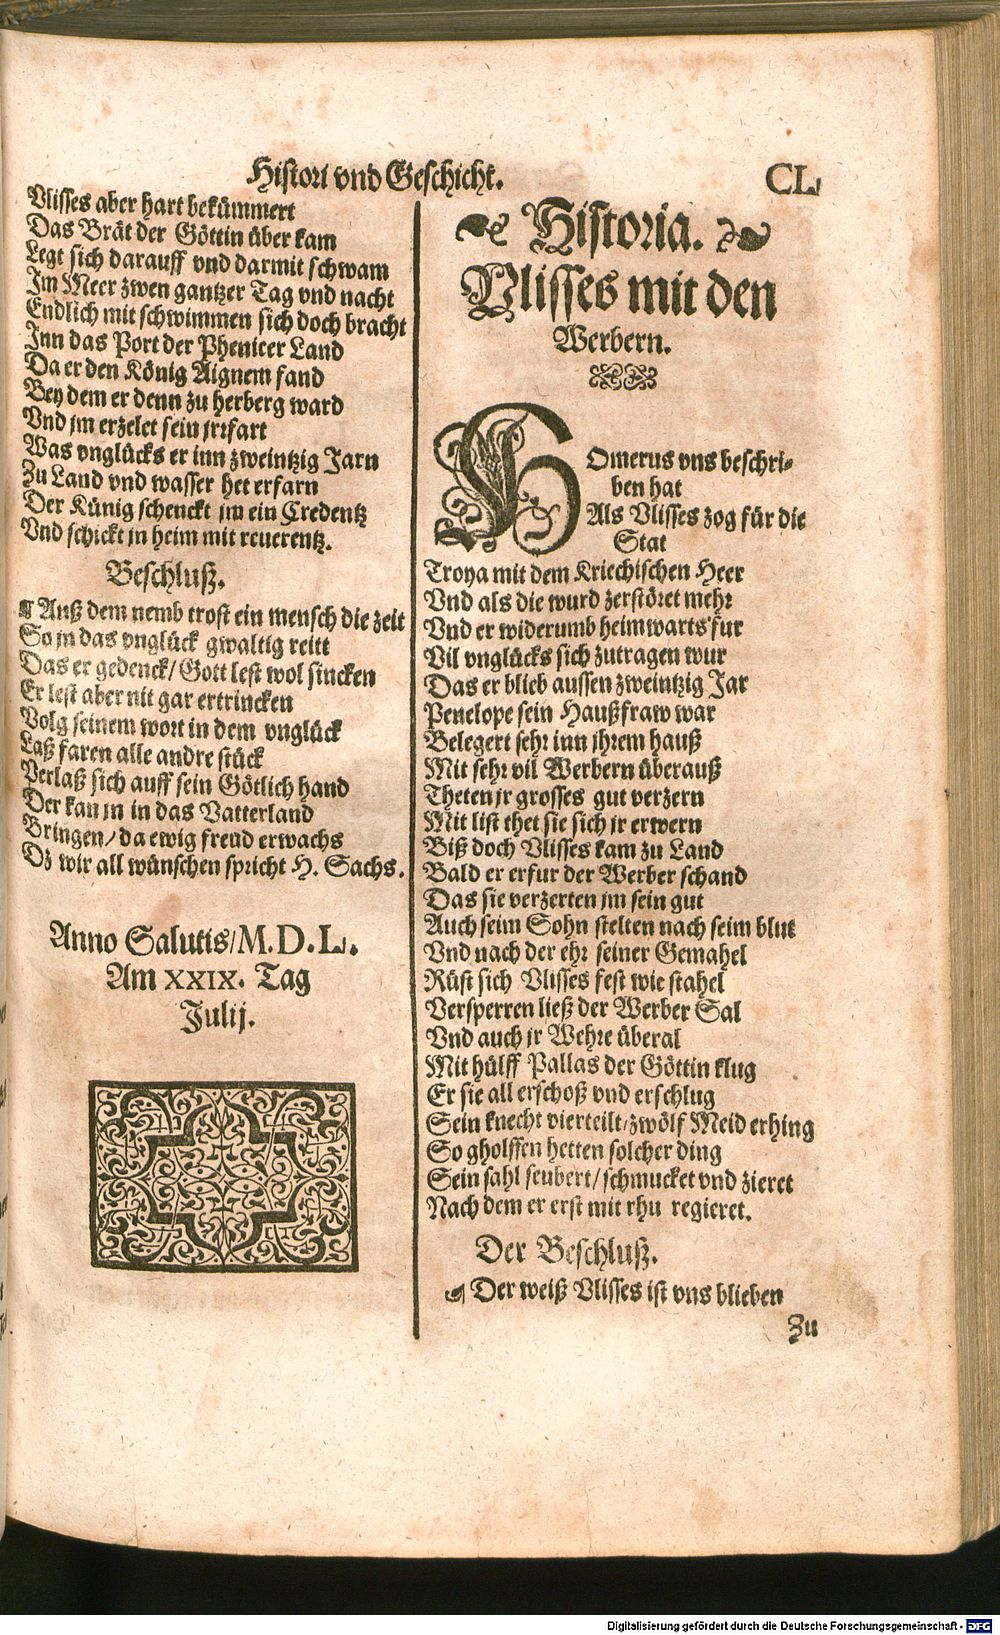 Histori vnd Geschicht. CL
Vlisses aber hart bekümmert
Das Brät der Göttin über kam
Legt sich darauff vnd darmit schwam
Im Meer zwen gantzer Tag vnd nacht
Endlich mit schwimmen sich doch bracht
Inn das Port der Phenicer Land
Da er den König Aignem fand
Bey dem er denn zu herberg ward
Vnd jm erzelet sein jrrfart
Was vnglücks er inn zweintzig Jarn
Zu Land vnd wasser het erfarn
Der Künig schenckt jm ein Credentz
Vnd schickt jn heim mit reuerentz.
Beschluß.
¶ Auß dem nemb trost ein mensch die zeit
So jn das vnglück gwaltig reitt
Das er gedenck/ Gott lest wol sincken
Er lest aber nit gar ertrincken
Volg seinem wort in dem vnglück
Laß faren alle andre stück
Verlaß sich auff sein Götlich hand
Der kan jn in das Vatterland
Bringen/ da ewig freud erwachs
Dz wir all wünschen spricht H. Sachs.
Anno Salutis/ M. D. L.
Am XXIX. Tag
Julij.
Historia.
Vlisses mit den
Werbern.
HOmerus vns beschri-
ben hat
Als Vlisses zog für die
Stat
Troya mit dem Kriechischen Heer
Vnd als die wurd zerstöret mehr
Vnd er widerumb heimwarts fur
Vil vnglücks sich zutragen wur
Das er blieb aussen zweintzig Jar
Penelope sein Haußfraw war
Belegert sehr inn jhrem hauß
Mit sehr vil Werbern überauß
Theten jr grosses gut verzern
Mit list thet sie sich jr erwern
Biß doch Vlisses kam zu Land
Bald er erfur der Werber schand
Das sie verzerten jm sein gut
Auch seim Sohn stelten nach seim blut
Vnd nach der ehr seiner Gemahel
Rüst sich Vlisses fest wie stahel
Versperren ließ der Werber Sal
Vnd auch jr Wehre überal
Mit hülff Pallas der Göttin klug
Er sie all erschoß vnd erschlug
Sein knecht vierteilt/ zwölf Meid erhing
So gholffen hetten solcher ding
Sein sahl seubert/ schmucket vnd zieret
Nach dem er erst mit rhu regieret.
Der Beschluß.
Der weiß Vlisses ist vns blieben
Zu
Digitalisierung gefördert durch die Deutsche Forschungsgemeinschaft - DFG